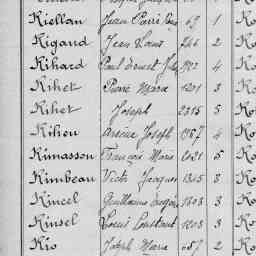 Kiellan Jean Marie 69 1 Ko
Kigaud Jean Louis 246 2 Ko
Kihard Paul Ernest Jules 702 4 Ko
Kihet Pierre Marie 1201 3 Ko
Kihet Joseph 2315 5 Ko
Kihou Joseph 4 Ko
Kimasson François Marie 2021 5 Ko
Kimbeau Victor Jacques 1305 3 Ko
Kincel Guillaume 1403 3 Ko
Kinsel Louis Constant 1203 3 Ko
Kio Joseph Marie 057 2 Ko